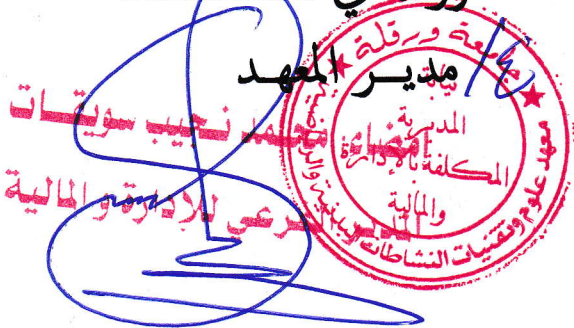 ع/ مدير المعهد
إمضاء محمد نجيب سويقات
المدير الفرعي للإدارة والمالية
جامعة ورقلة
معهد علوم وتقنيات النشاطات البدنية والرياضية
نيابة
المديرية
المكلفة بالإدارة
والمالية